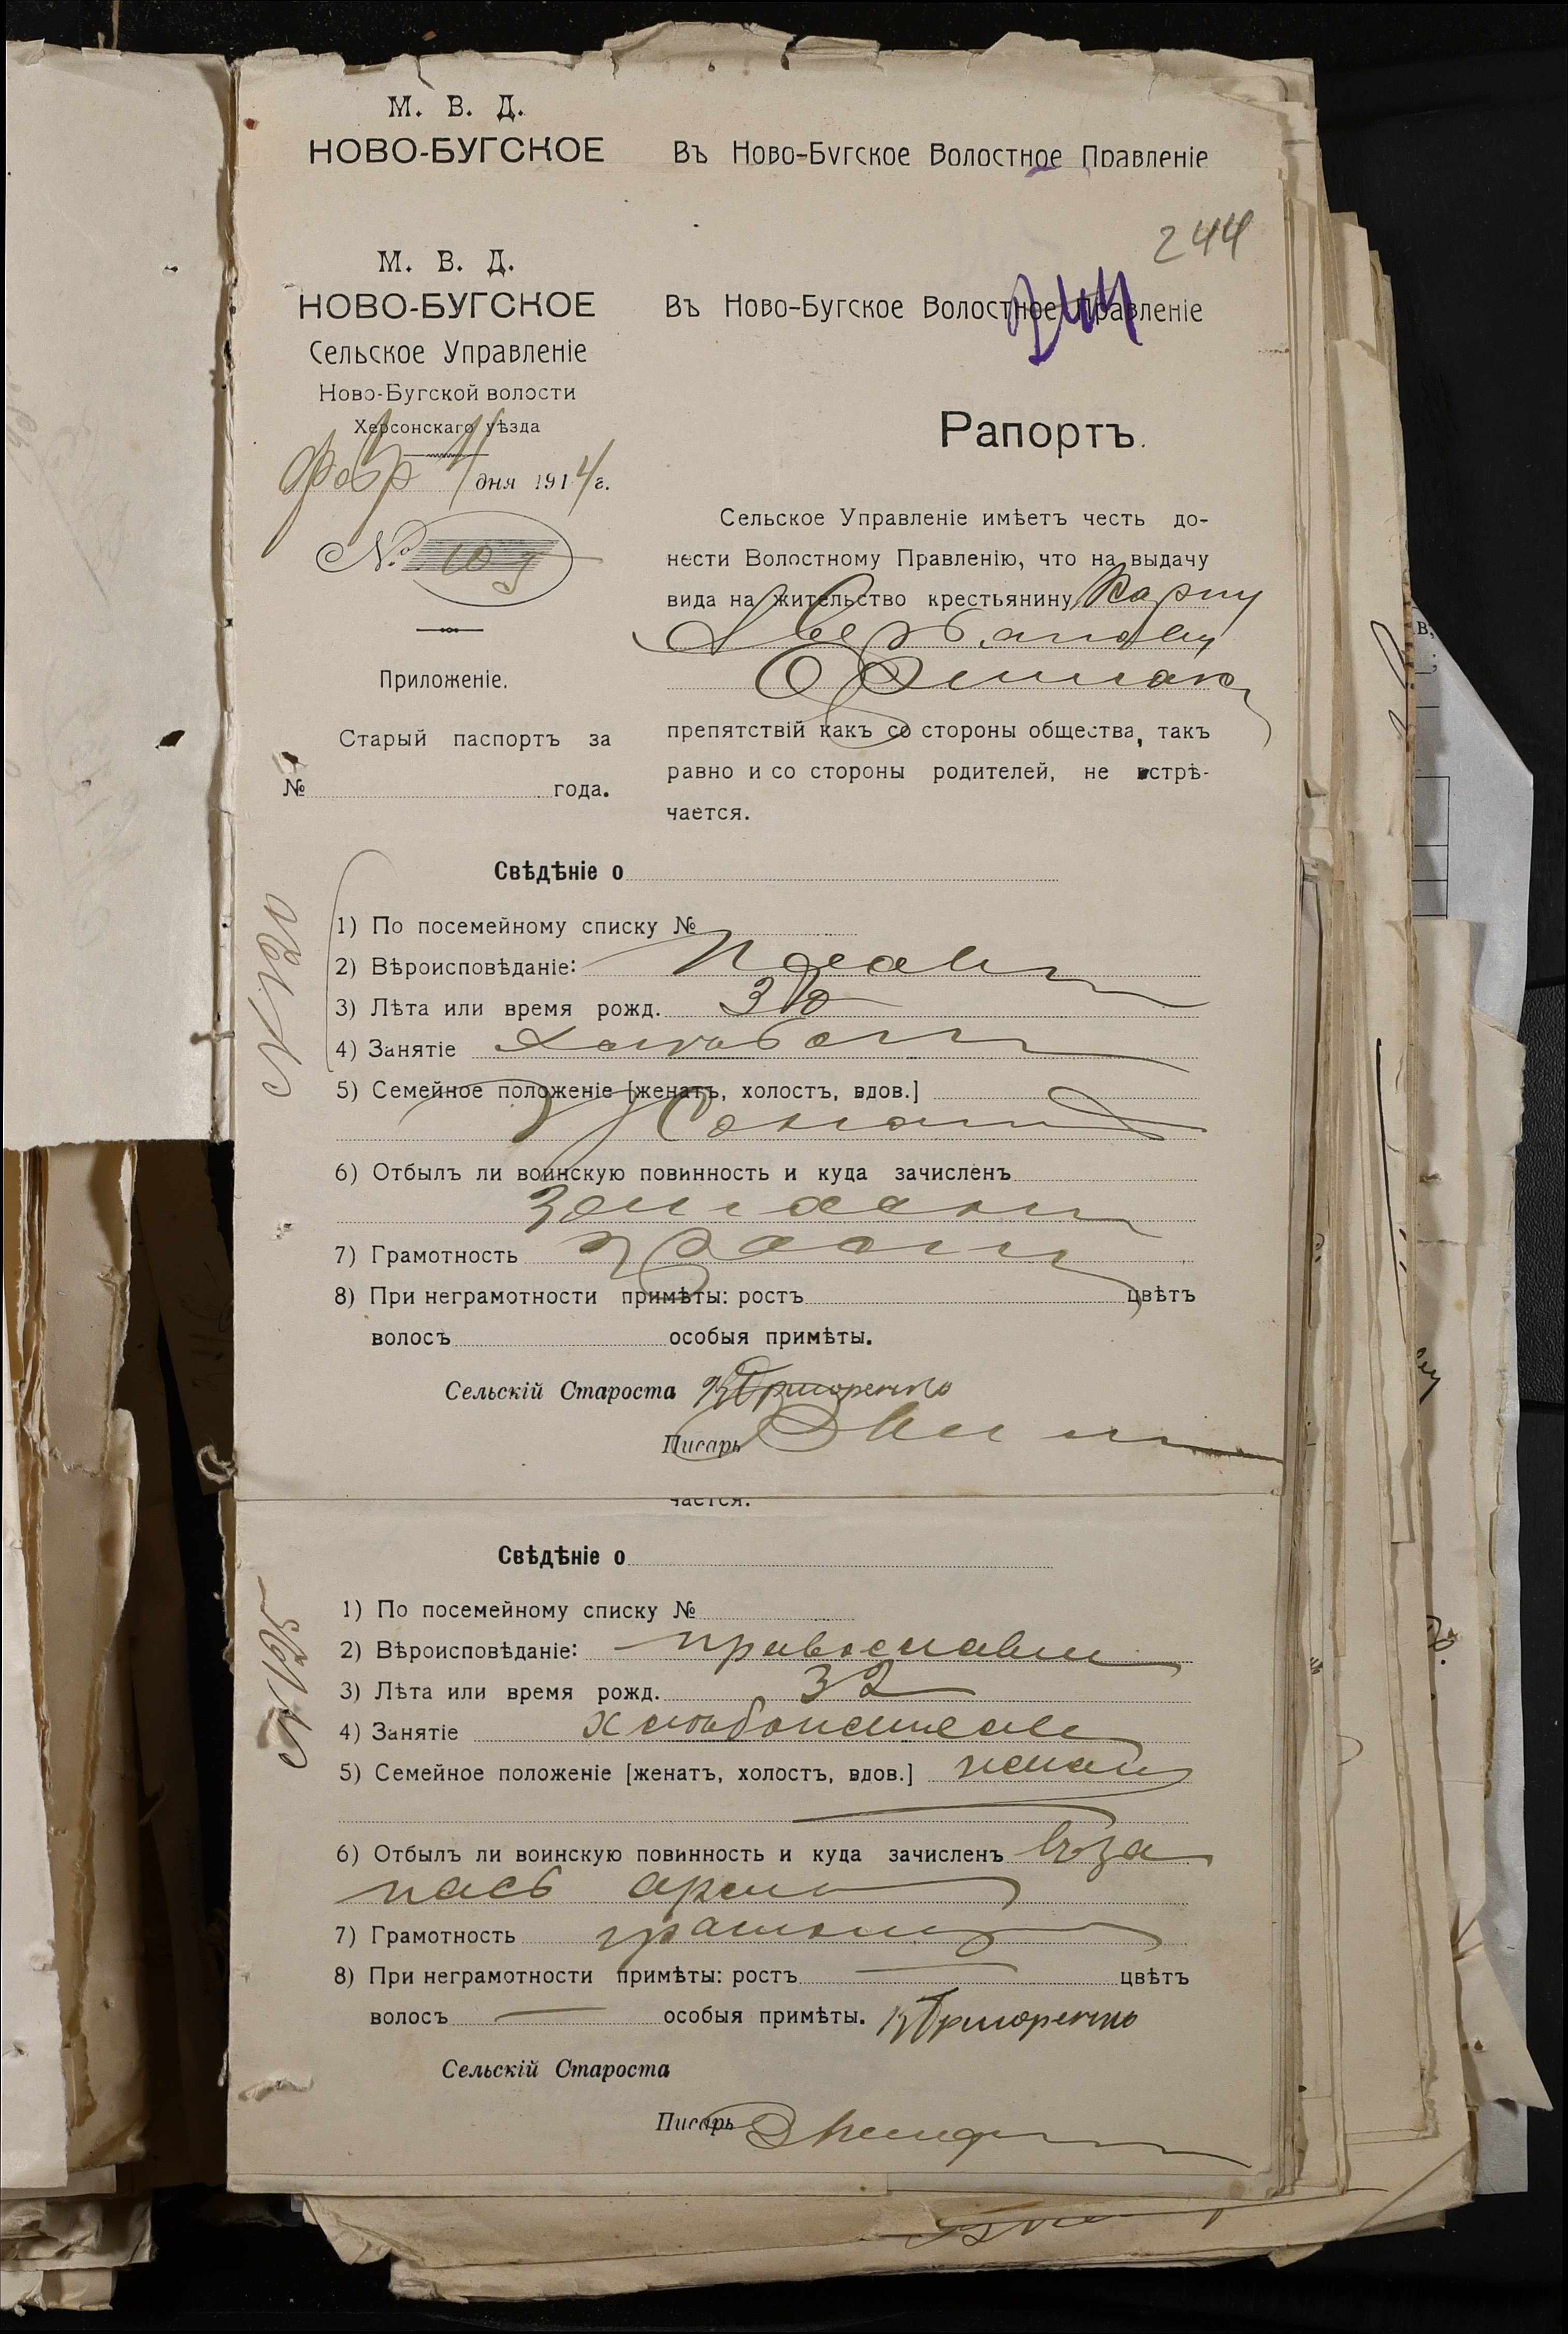 М. В. Д.
НОВО-БУГСКОЕ
Въ Ново-Бугское Волостное Правленіе
244
М. В. Д.
НОВО-БУГСКОЕ
Сельское Управленіе
Ново-Бугской волости
Херсонскаго уѣзда
февр 4 дня 1914 г.
№
Приложеніе.
Старый паспортъ за
№ года.
Въ Ново-Бугское Волостное Правленіе
244
Рапортъ.
Сельское Управленіе имѣетъ честь до-
нести Волостному Правленію, что на выдачу
вида на жительство крестьянину Карпу
препятствій какъ со стороны общества, такъ
равно и со стороны родителей, не встрѣ-
чается.
Свѣдѣніе о
№ 120
1) По посемейному списку №
2) Вѣроисповѣданіе: Правсл
3) Лѣта или время рожд.
4) Занятіе
5) Семейное положеніе [женатъ, холостъ, вдов.]
Женат
6) Отбылъ ли воинскую повинность и куда зачисленъ
7) Грамотность
8) При неграмотности примѣты: ростъ цвѣтъ
волосъ особыя примѣты.
Сельскій Староста КГригоренко
Писарь
чается.
Свѣдѣніе о
№ 125
1) По посемейному списку №
2) Вѣроисповѣданіе: православн
3) Лѣта или время рожд. 32
4) Занятіе хлѣбопашец
5) Семейное положеніе [женатъ, холостъ, вдов.] женат
6) Отбылъ ли воинскую повинность и куда зачисленъ въ за
пасъ арми
7) Грамотность грамотн
8) При неграмотности примѣты: ростъ — цвѣтъ
волосъ — особыя примѣты. КГригоренко
Сельскій Староста
Писарь